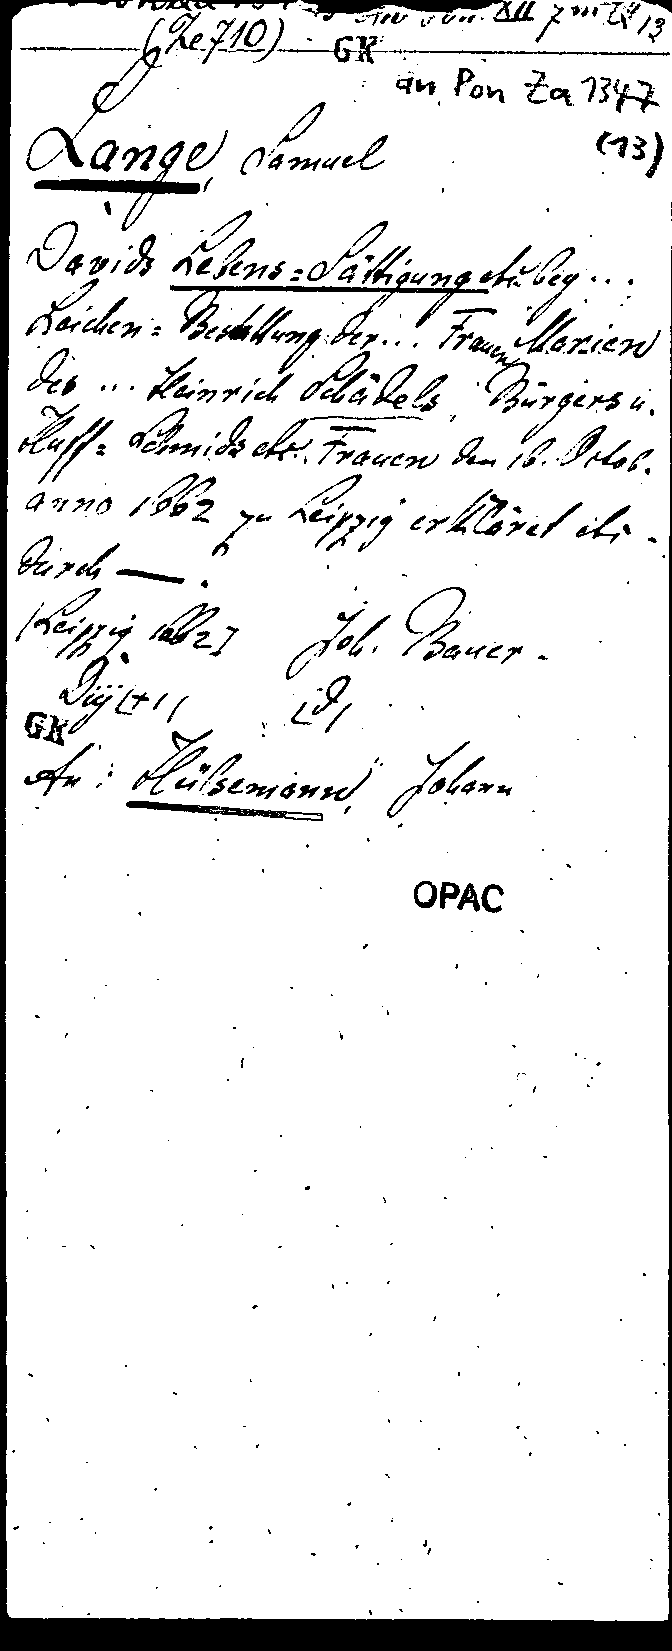 (Ze 710) GK
an Pon Za 1347
(13)
Lange, Samuel
Davids Lebens=Sättigung etc. bey ...
Leichen=Bestattung der ... Frauen Marien
des ... Heinrich Schädels, Bürgers u.
Huff=Schmids etc. Frauen den 16. Octob.
anno 1662 zu Leipzig erkläret etc.
durch —.
[Leipzig 1662] Joh. Bauer.
GK
An: Hülsemann, Johann
OPAC